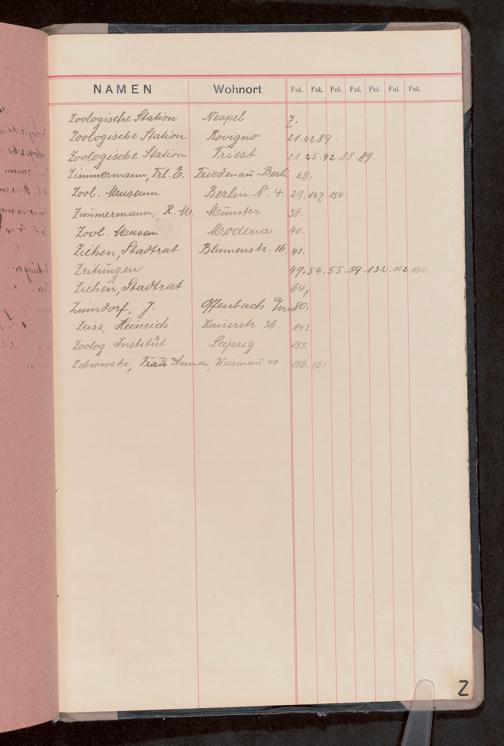 NAMEN Wohnort Fol. Fol. Fol. Fol. Fol. Fol. Fol.
Zoologische Station Neapel 7.
Zoologische Station Rovigno 21.42.89.
Zoologische Station Triest 21.25.42.88.89.
Zimmermann, Frl. E. Friedenau-Berl. 28.
Zool. Museum Berlin N. 4. 29.147.154
Zimmermann, R. W. Münster 36.
Zool. Museum Modena 40.
Ziehen, Stadtrat Blumenstr. 16 41.
Zeitungen 49.54.55.59.132.152
Ziehen, Stadtrat 64,
Zündorf, J. Offenbach a/m 80.
Zeiss, Heinrich Kaiserstr. 36 143.
Zoolog Institut Leipzig 155.
Zebrowski, Frau Anna, Wiesenau 40
Z